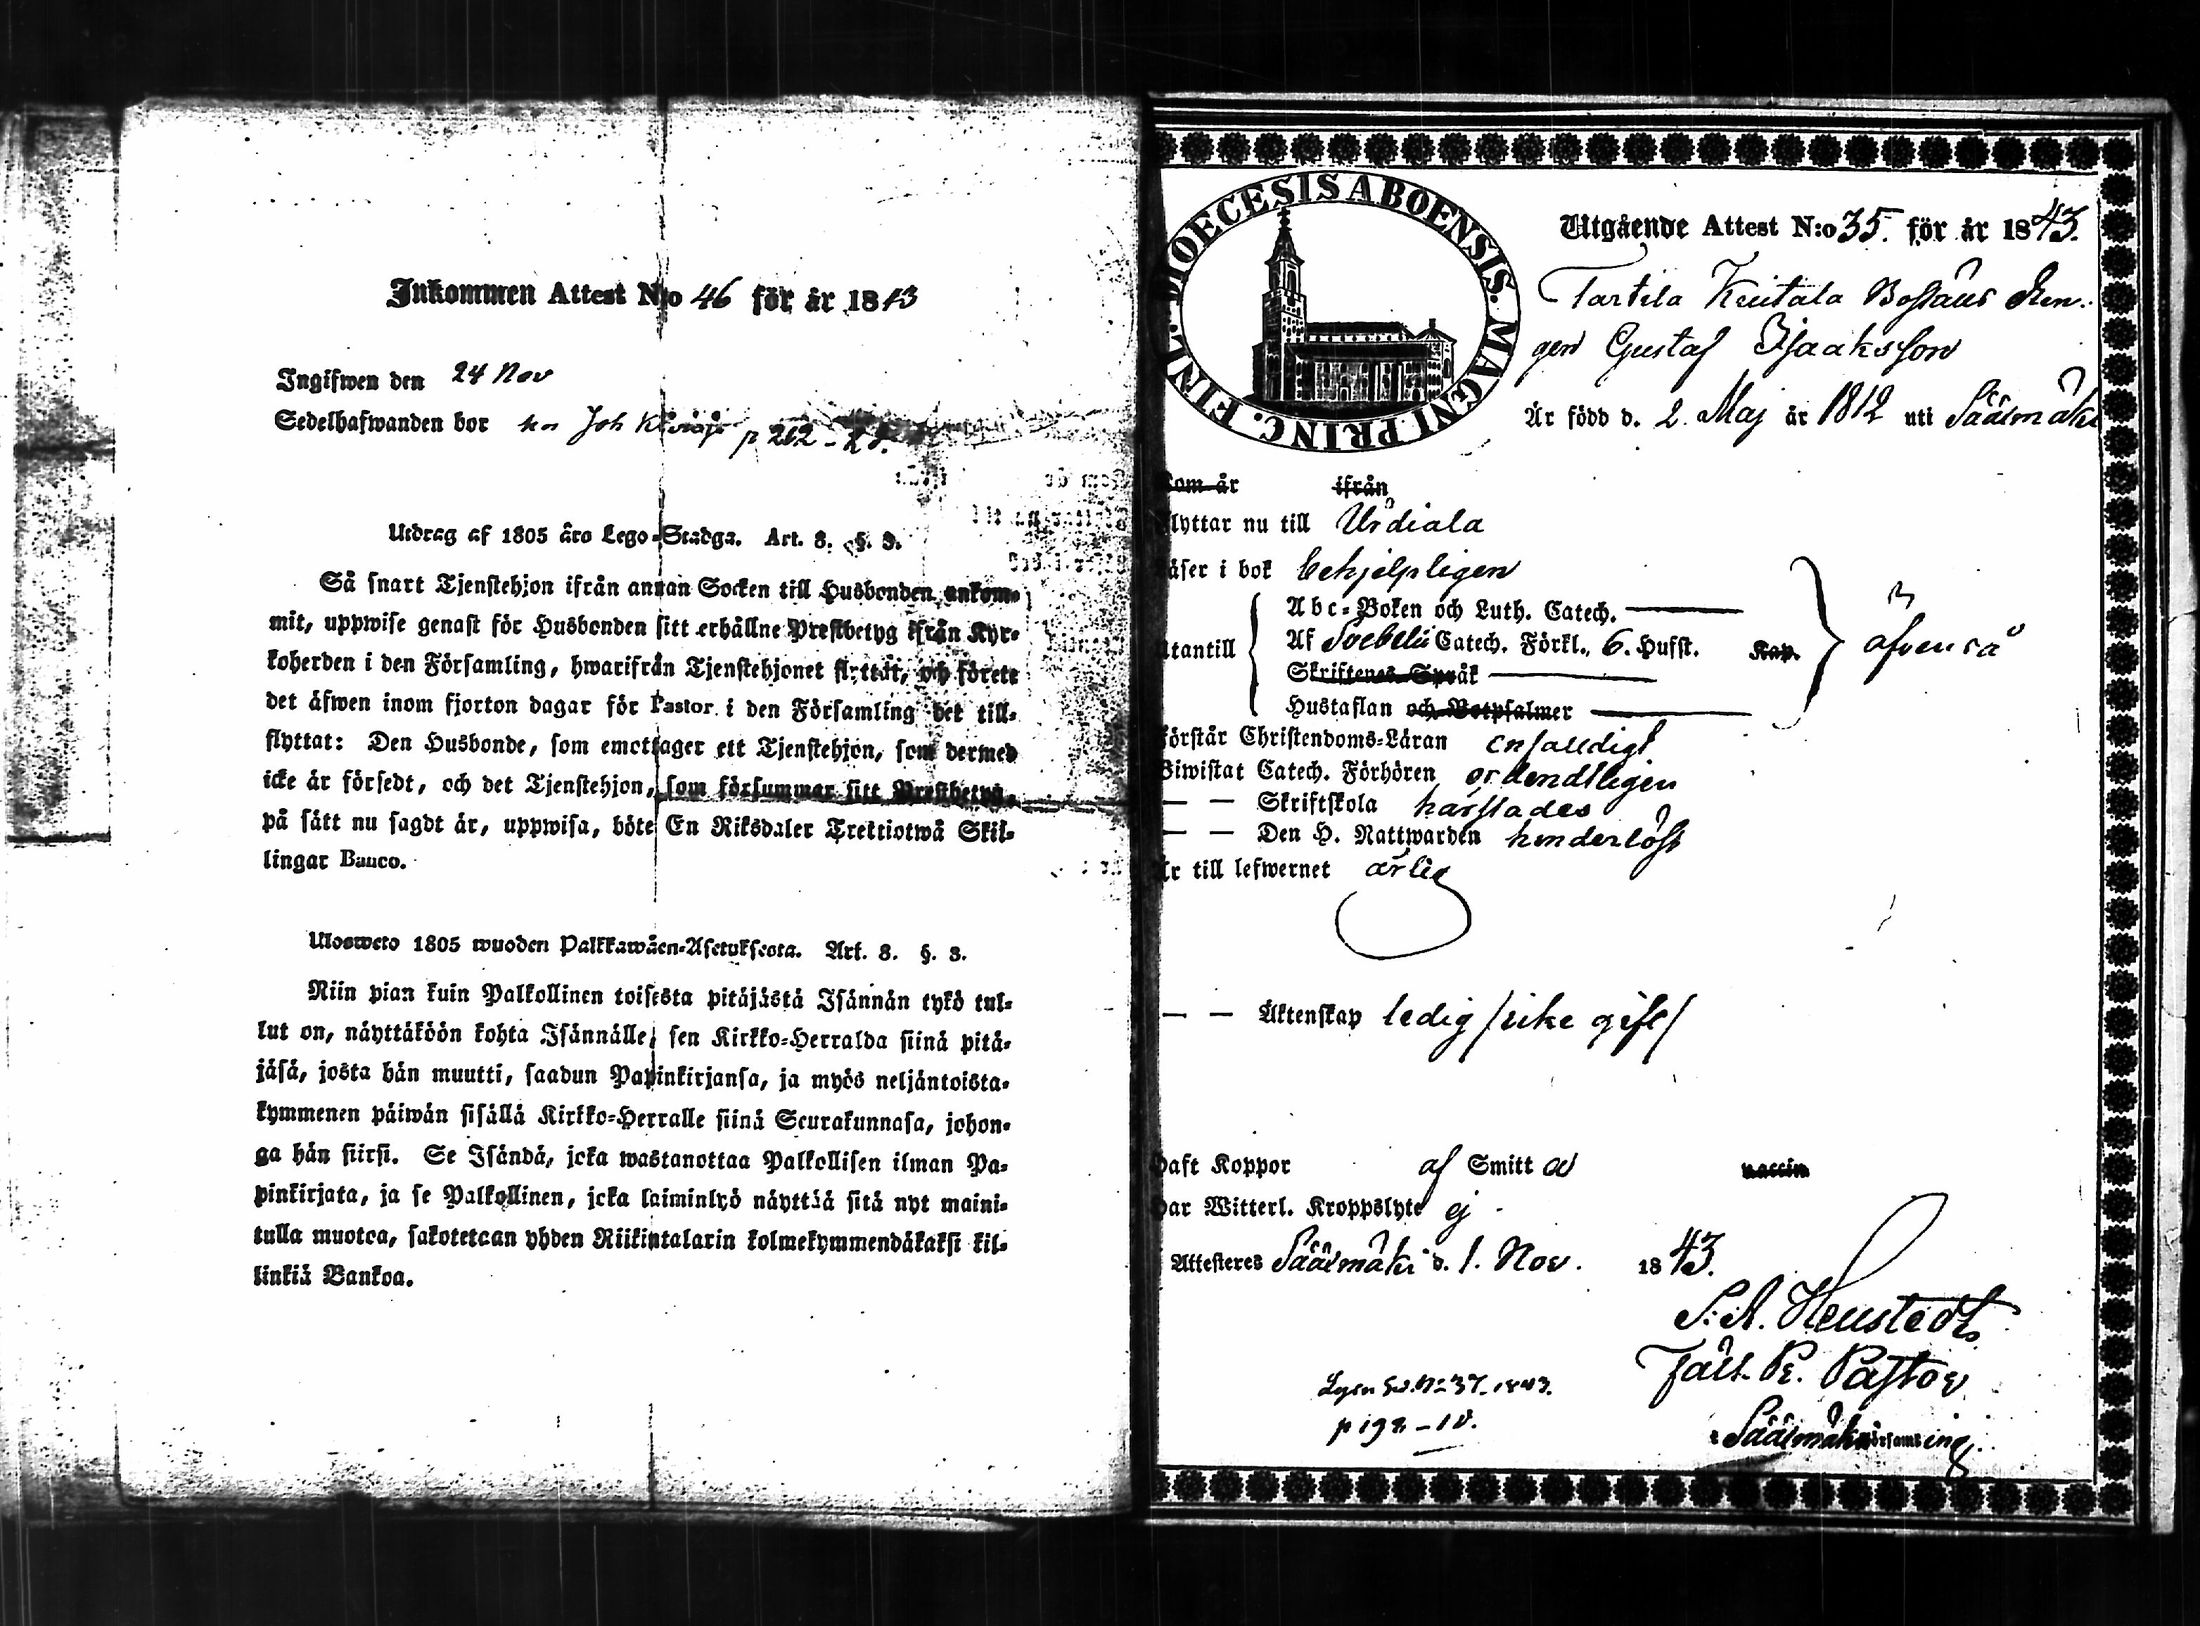 Inkommen Attest N:o 46 för år 1843
Ingifwen den 24 Nov
Sedelhafwanden bor hos Joh p 262
Utdrag af 1805 års Lego-Stadga. Art. 8. §. 3.
Så snart Tjenstehjon ifrån annan Socken till Husbonden ankom-
mit, uppwise genast för Husbonden sitt erhållne Prestbetyg ifrån Kyr-
koherden i den Församling, hwarifrån Tjenstehjonet flyttat, och förete
det äfwen inom fjorton dagar för Pastor i den Församling det till-
flyttat: Den Husbonde, som emottager ett Tjenstehjon, som dermed
icke är försedt, och det Tjenstehjon, som försummar sitt Prestbetyg,
på sätt nu sagdt är, uppwisa, böte En Riksdaler Trettiotwå Skil-
lingar Banco.
Ulosweto 1805 wuoden Palkkawäen-Asetuksesta. Art. 8. §. 3.
Niin pian kuin Palkollinen toisesta pitäjästä Isännän tykö tul-
lut on, näyttäköön kohta Isännälle, sen Kirkko-Herralda siinä pitä-
jäsä, josta hän muutti, saadun Papinkirjansa, ja myös neljäntoista-
kymmenen päiwän sisällä Kirkko-Herralle siinä Seurakunnasa, johon-
ga hän siirsi. Se Isändä, joka wastanottaa Palkollisen ilman Pa-
pinkirjata, ja se Palkollinen, joka laiminlyö näyttää sitä nyt maini-
tulla muotoa, sakotetaan yhden Riikintalarin kolmekymmendäkaksi kil-
linkiä Bankoa.
FINL. DIOECESIS ABOENSIS. MAGNI PRINC.
Utgående Attest N:o 35. för år 1843.
Tartila Keitala Bostäus Dren-
gen Gustaf Isaaksson
Är född d. 2. Maj år 1812 uti Sääxmäki
Kom år ifrån
Flyttar nu till Urdiala
Läser i bok behjelpligen
Utantill
Abc-Boken och Luth. Catech.
Af Svebelii Catech. Förkl., 6. Hufst. Kap.
Skriftenes Språk
Hustaflan och Botpsalmer
äfvenså
Förstår Christendoms-Läran enfalldigt
Biwistat Catech. Förhören ordendtligen
— — Skriftskola härstädes
— — Den H. Nattwarden hinderlöst
Är till lefwernet ärlig
— — Äktenskap ledig /icke gift/
Haft Koppor af Smitt vaccin
Har Witterl. Kroppslyte ej
Attesteres Sääxmäki d. 1. Nov. 1843.
Pastor
i Sääxmäki Församling.
p 198 – 10.